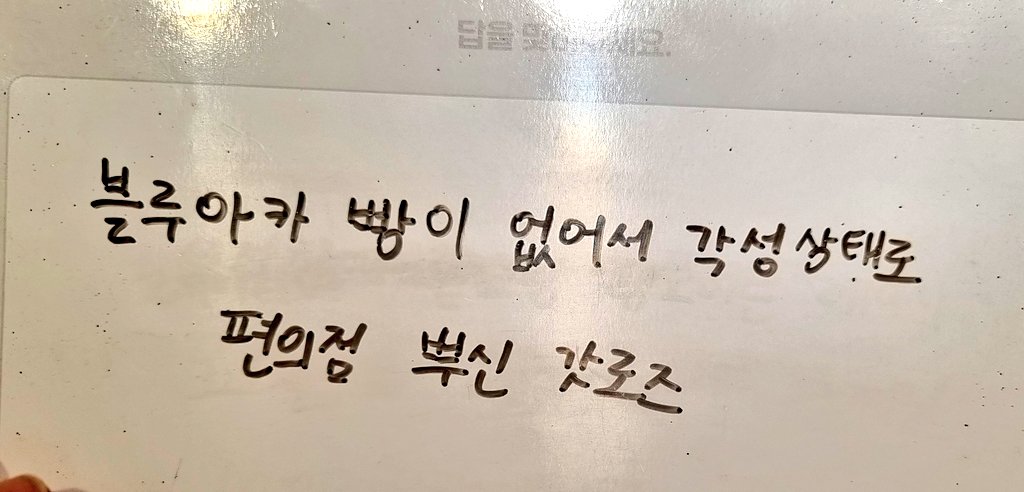 블루아카 빵이 없어서 각성상태로
편의점 뿌신 갓로즈